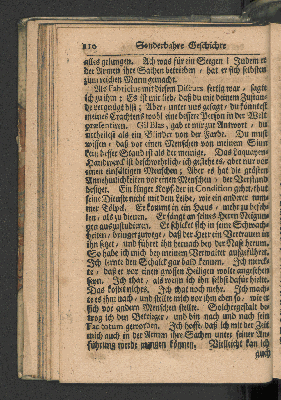 210 Sonderbahre Geschichte
alles gelungen. Ach was für ein Segen! Indem er
der Armen ihre Sachen betrieben, hat er sich selbsten
zum reichen Mann gemacht.
Als Fabricius mit diesem Discurs fertig war, sagte
ich zu ihm: Es ist mir lieb, daß du mit deinem Zustan-
de vergnügt bist; Aber, unter uns gesagt, du könntest
meines Erachtens wohl eine bessere Person in der Welt
præsentiren. Gil Blas, gab er mir zur Antwort, du
urtheilest als ein Blinder von der Farbe. Du must
wissen, daß vor einen Menschen von meinem Sinn
kein besser Stand ist als der meinige. Das Laqueyen-
Handwerck ist beschwerlich, ich gestehe es, aber nur vor
einen einfältigen Menschen; Aber es hat die grösten
Annehmlichkeiten vor einen Menschen, der Verstand
besitzet. Ein kluger Kopf, der in Condition gehet, thut
seine Dienste nicht mit dem Leibe, wie ein anderer
Tölpel. Er kommt in ein Haus, mehr zu befeh-
len, als zu dienen. Er fänget an seines Herrn Neigun-
gen auszustudiren. Er schicket sich in seine Schwach-
heiten, bringet zuwege, daß der Herr ein Vertrauen in
ihn setzt, und führet ihn hernach bey der Nase herum.
So habe ich mich bey meinem Verwalter aufgeführet.
Ich lernte den Schalck gar bald kennen. Ich merck-
te, daß er vor einen grossen Heiligen wolte angesehen
seyn. Ich that, als wenn ich ihn selbst dafür hielte.
Das kostet nichts. Ich that noch mehr. Ich mach-
te es ihm nach, und stellte mich vor ihm eben so, wie er
sich vor andern Menschen stellte. Solchergestalt be-
trog ich den Betrieger, und bin nach und nach sein
Factotum geworden. Ich hoffe, daß ich mit der Zeit
mich auch in der Armen ihre Sachen unter seiner An-
führung werde mengen können. Vielleicht kan ich
auch